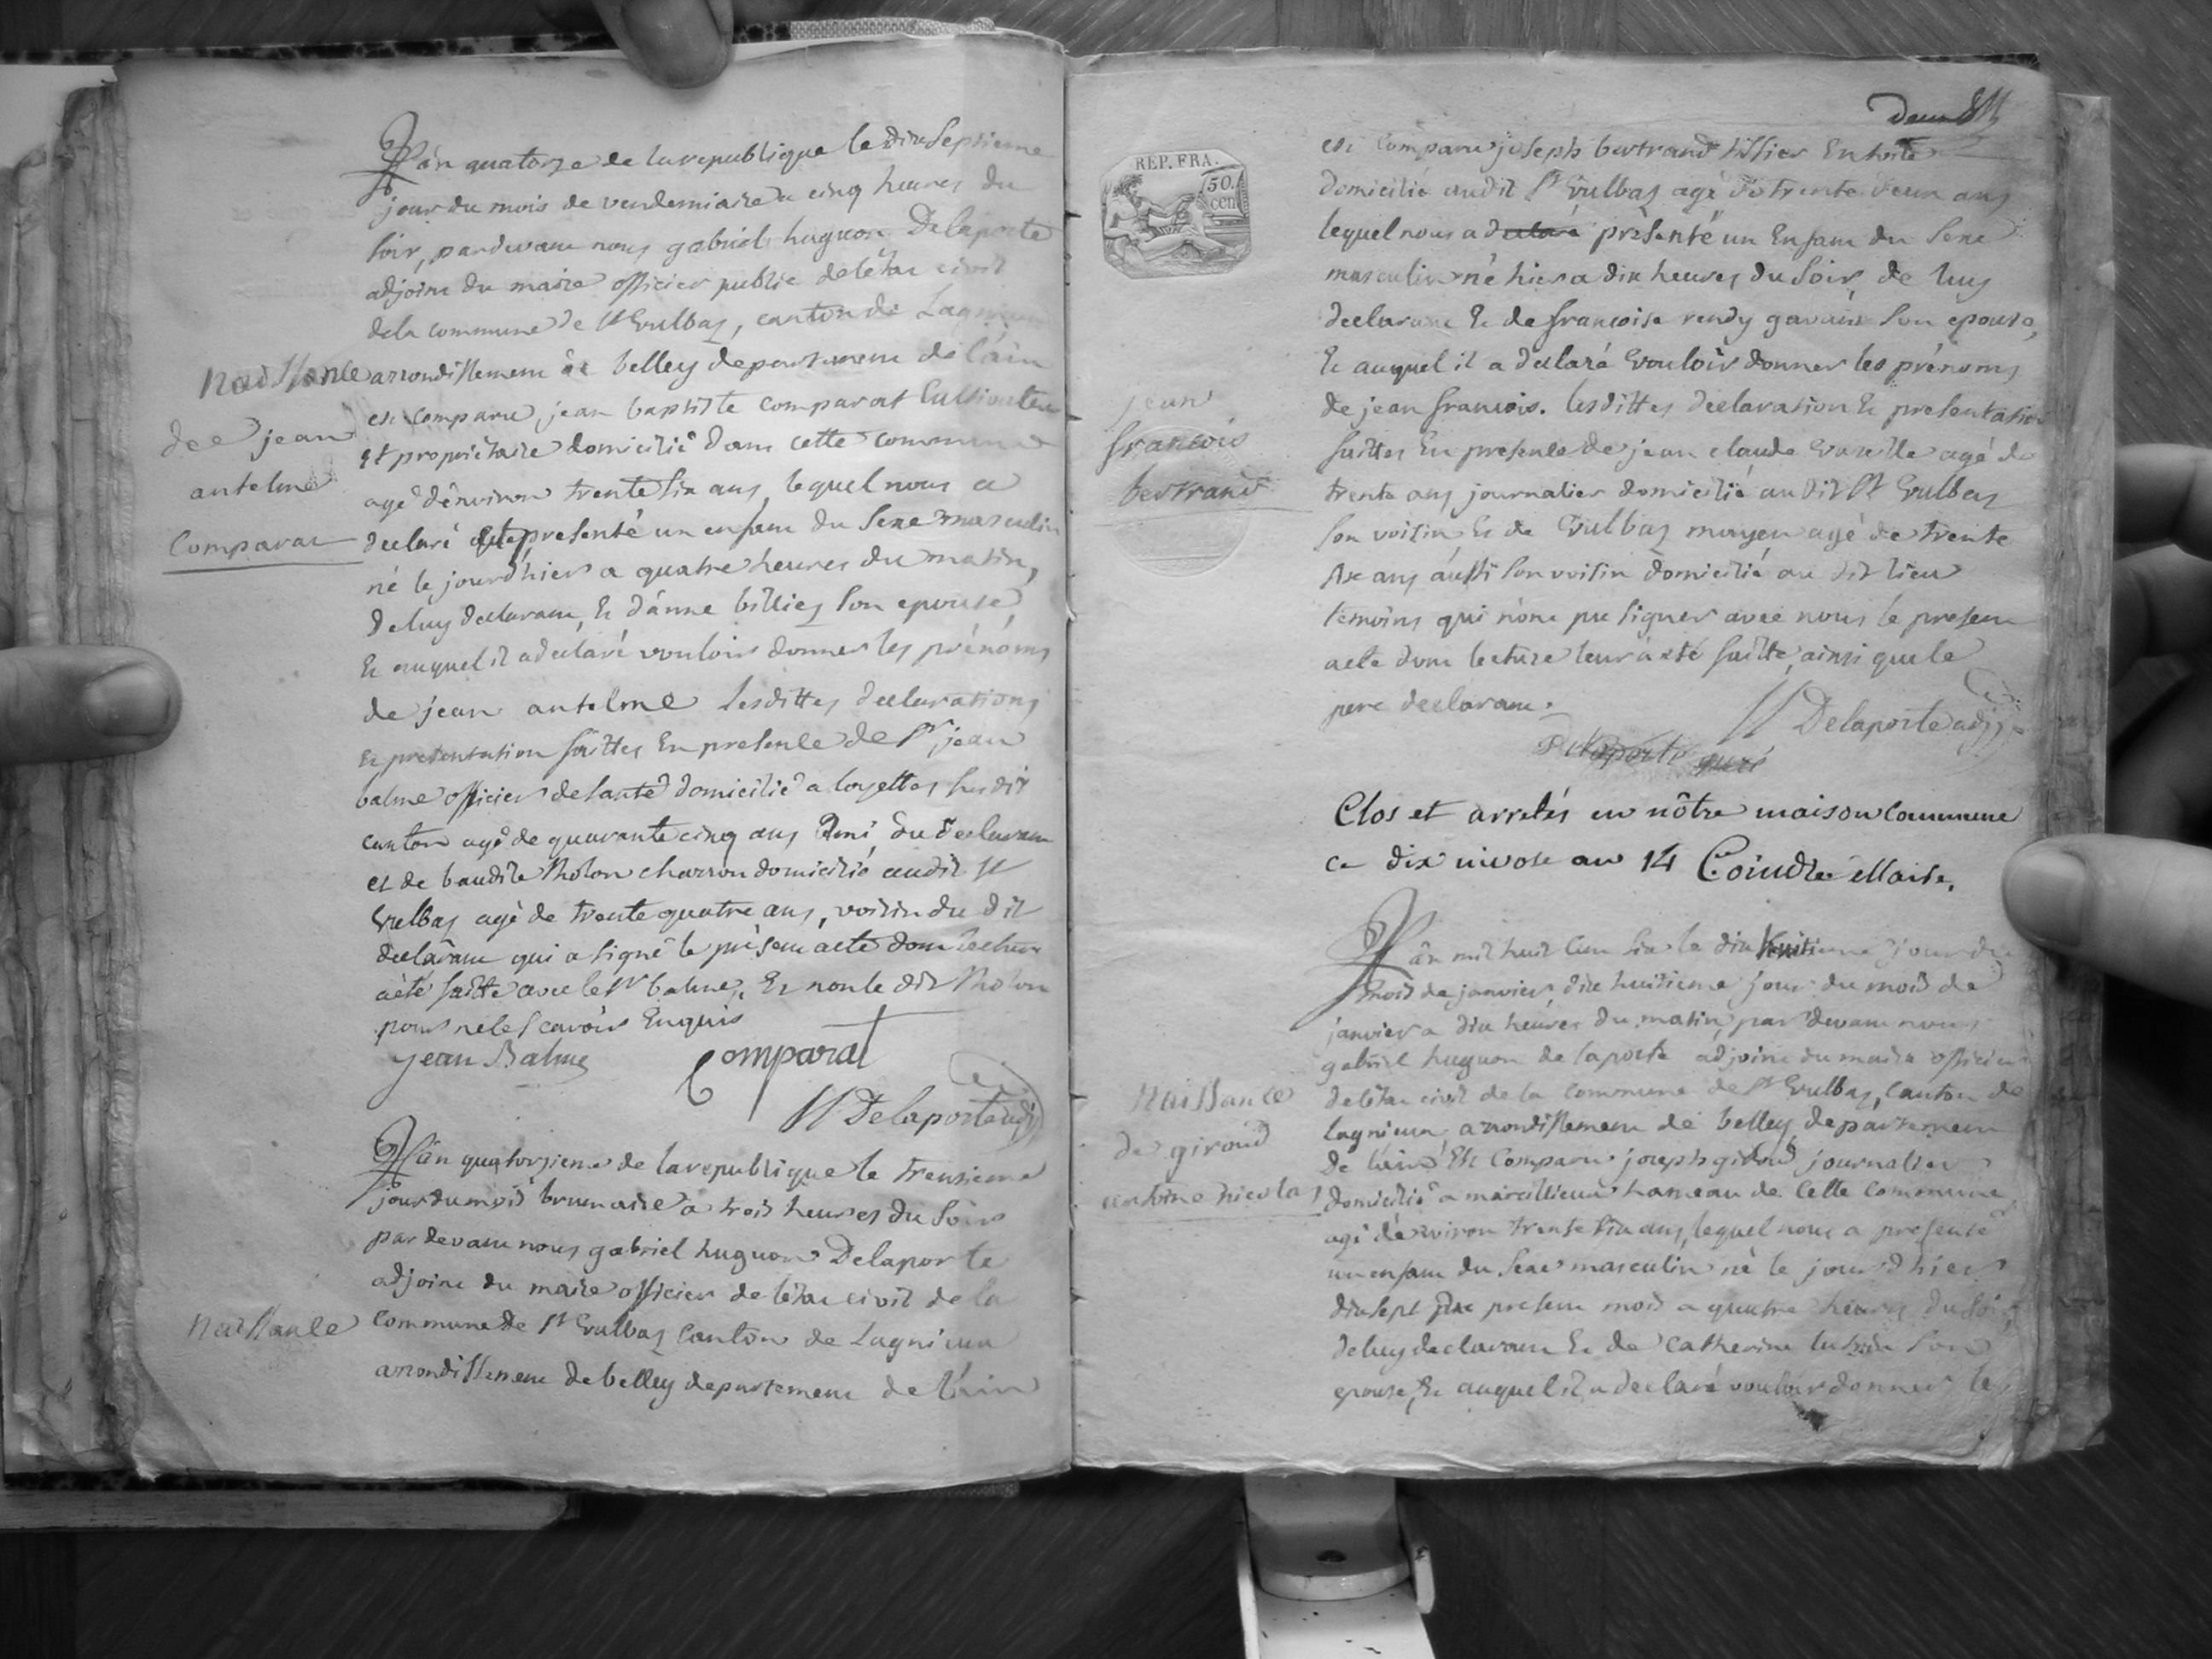 L'an quatorze de la republique le dix septieme
jour du mois de vendemiaire a cinq heures du
soir, pardevant nous gabriel huguon Delaporte
adjoint du maire officier public de l'état civil
de la commune de St Vulbas, canton de Lagnieu
Naissance
arrondissement de belley departement de l'ain
de jean
antelme
Comparat
est comparu jean baptiste comparat cultivateur
et propriétaire domicilié dans cette commune
agé d'environ trente six ans, lequel nous a
declaré et presenté un enfant du sexe masculin
né le jour d'hier a quatre heures du matin,
de luy declarant, et d'anne billiez son epouse
et auquel il a declaré vouloir donner les prénoms
de jean antelme lesdittes declarations
et presentation faittes en presence de sr jean
balme officier de santé domicilié a loyettes susdit
canton agé de quarante cinq ans ami du declarant
et de baudile Molon charron domicilié audit St
Vulbas agé de trente quatre ans, voisin du dit
declarant qui a signé le présent acte dont lecture
a été faitte avec le sr balme, et non le dit Molon
pour ne le scavoir enquis
jean Balme
Comparat
H Delaporte adj
L'an quatorzieme de la republique le
jour du mois brumaire a trois heures du soir
par devant nous gabriel huguon Delaporte
adjoint du maire officier de l'état civil de la
Naissance
commune de St Vulbas canton de Lagnieu
arrondissement de belley departement de l'ain
REP. FRA.
50. cen
est comparu joseph bertrand tissier
domicilié audit St Vulbas agé de trente deux ans
lequel nous a declaré présenté un enfant du sexe
masculin né hier a dix heures du soir, de luy
declarant et de francoise son epouse,
et auquel il a declaré vouloir donner les prénoms
jean
francois
bertrand
de jean francois. lesdittes declaration et presentation
faittes en presence de jean claude agé de
trente ans journalier domicilié au dit St Vulbas
son voisin et de Vulbas moyen agé de trente
six ans aussi son voisin domicilié au dit lieu
temoins qui n'ont pu signer avec nous le present
acte dont lecture leur a été faitte, ainsi que le
pere declarant.
H Delaporte adj
Delaporte
Clos et arretés en nôtre maison commune
ce dix nivose an 14 Coindre Maire.
L'an mil huit cent six le dix huitieme jour du
mois de janvier, dix huitieme jour du mois de
janvier a dix heures du matin, par devant nous
gabriel huguon de laporte adjoint du maire officier
Naissance
de giroud
antoine nicolas
de l'état civil de la commune de St Vulbas, canton de
lagnieu, arrondissement de belley, departement
de l'ain est comparu joseph giroud journalier
domicilié a marcillieux hameau de cette commune
agé d'environ trente six ans, lequel nous a presenté
un enfant du sexe masculin né le jour d'hier
dix sept du present mois a quatre heures du soir,
de luy declarant et de Catherine son
epouse, et auquel il a declaré vouloir donner les